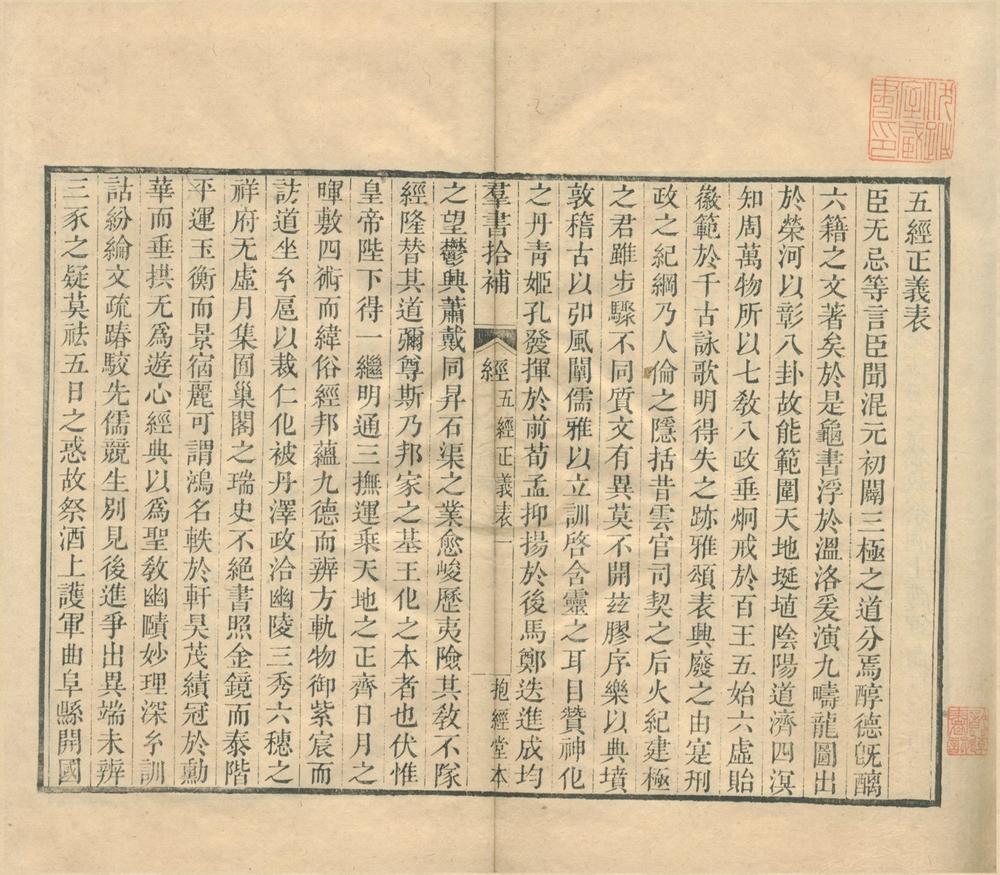 五經正義表
臣无忌等言臣聞混元初闢三極之道分焉醇德旣醨
六籍之文著矣於是龜書浮於溫洛爰演九疇龍圖出
於榮河以彰八卦故能範圍天地埏埴陰陽道濟四溟
知周萬物所以七敎八政垂炯戒於百王五始六虛貽
徽範於千古詠歌明得失之跡雅頌表興廢之由寔刑
政之紀綱乃人倫之隱括昔雲官司契之后火紀建極
之君雖步驟不同質文有異莫不開玆膠序樂以典墳
敦稽古以卬風闡儒雅以立訓啓含靈之耳目贊神化
之丹青姬孔發揮於前荀孟抑揚於後馬鄭迭進成均
羣書拾補
經
五經正義表
一
抱經堂本
之望鬱興蕭戴同昇石渠之業愈峻歷夷險其敎不隊
經隆替其道彌尊斯乃邦家之基王化之本者也伏惟
皇帝陛下得一繼明通三撫運乘天地之正齊日月之
暉敷四術而緯俗經邦蘊九德而辨方軌物御紫宸而
訪道坐𤣥扈以裁仁化被丹澤政洽幽陵三秀六穗之
祥府无虛月集囿巢閣之瑞史不絕書照金鏡而泰階
平運玉衡而景宿麗可謂鴻名軼於軒昊茂績冠於勳
華而垂拱无爲遊心經典以爲聖敎幽賾妙理深𤣥訓
詁紛綸文疏踳駮先儒競生別見後進爭出異端未辨
三豕之疑莫祛五日之惑故祭酒上護軍曲阜縣開國